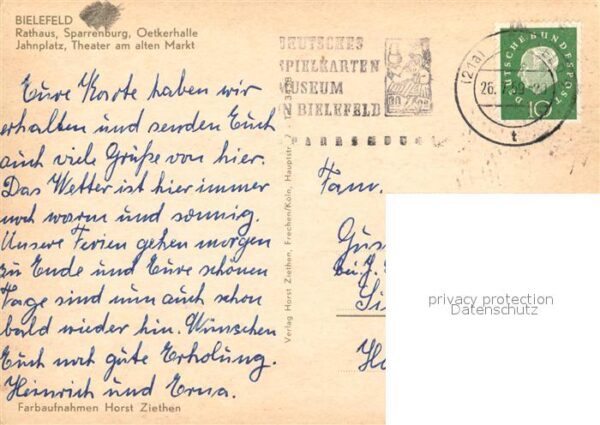 BIELEFELD
Rathaus, Sparrenburg, Oetkerhalle
Jahnplatz, Theater am alten Markt
Eure Karte haben wir
erhalten und senden Euch
auch viele Grüße von hier.
Das Wetter ist hier immer
noch warm und sonnig.
Unsere Ferien gehen morgen
zu Ende und Eure schönen
Tage sind nun auch schon
bald wieder hin. Wünschen
Euch noch gute Erholung.
Heinrich und Erna.
Farbaufnahmen Horst Ziethen
Verlag Horst Ziethen, Frechen/Köln, Hauptstr.
DEUTSCHES
SPIELKARTEN
MUSEUM
BIELEFELD
(21a)
26.
t
DEUTSCHE BUNDESPOST
10
Fam.
privacy protection
Datenschutz